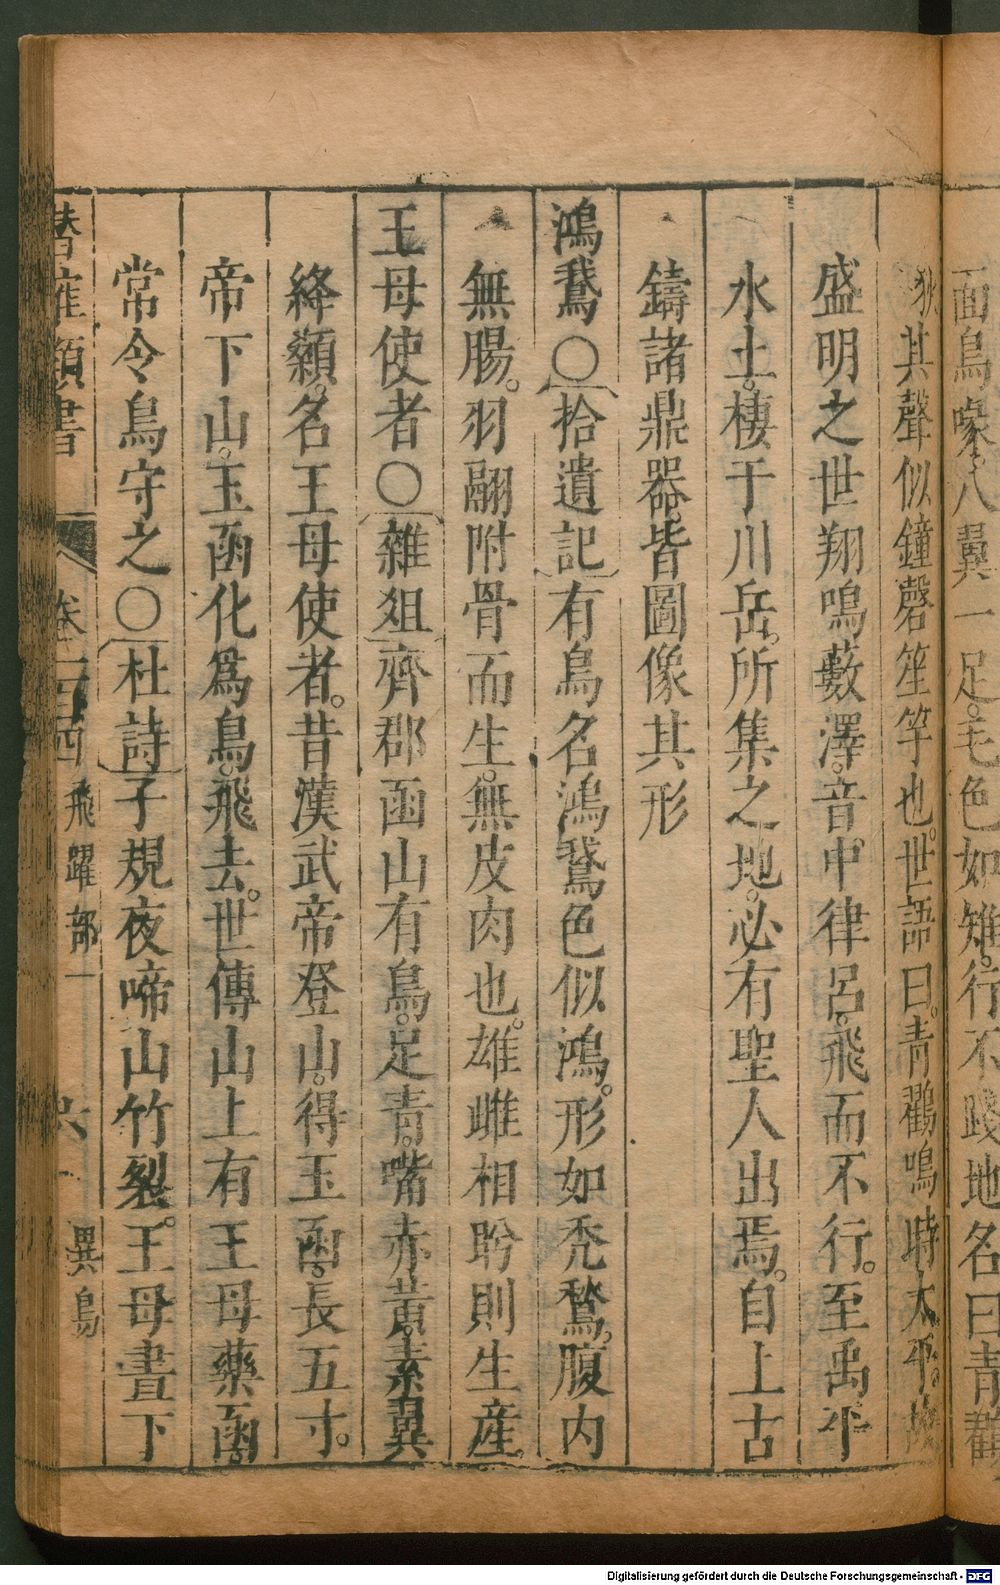 面鳥喙。八翼一足。毛色如雉。行不踐地名曰青鸛
其聲似鐘磬笙竽也。世語曰。青鸛鳴時太平。故
盛明之世翔鳴藪澤。音中律呂。飛而不行。至禹平
水土。棲于川岳。所集之地。必有聖人出焉。自上古
鑄諸鼎器。皆圖像其形
鴻鵞〇〔拾遺記〕有鳥名鴻鵞色似鴻。形如禿鶖。腹内
無腸。羽翮附骨而生。無皮肉也。雄雌相眄則生産。
王母使者〇〔雜俎〕齊郡函山有鳥。足青。嘴赤黃。素翼
絳顙。名王母使者。昔漢武帝登山。得玉函。長五寸。
帝下山。玉函化爲鳥。飛去。世傳山上有王母藥函
常令鳥守之〇〔杜詩〕子規夜啼山竹裂。王母晝下
潛確類書 卷一百四 飛躍部一 六 異鳥
Digitalisierung gefördert durch die Deutsche Forschungsgemeinschaft - DFG